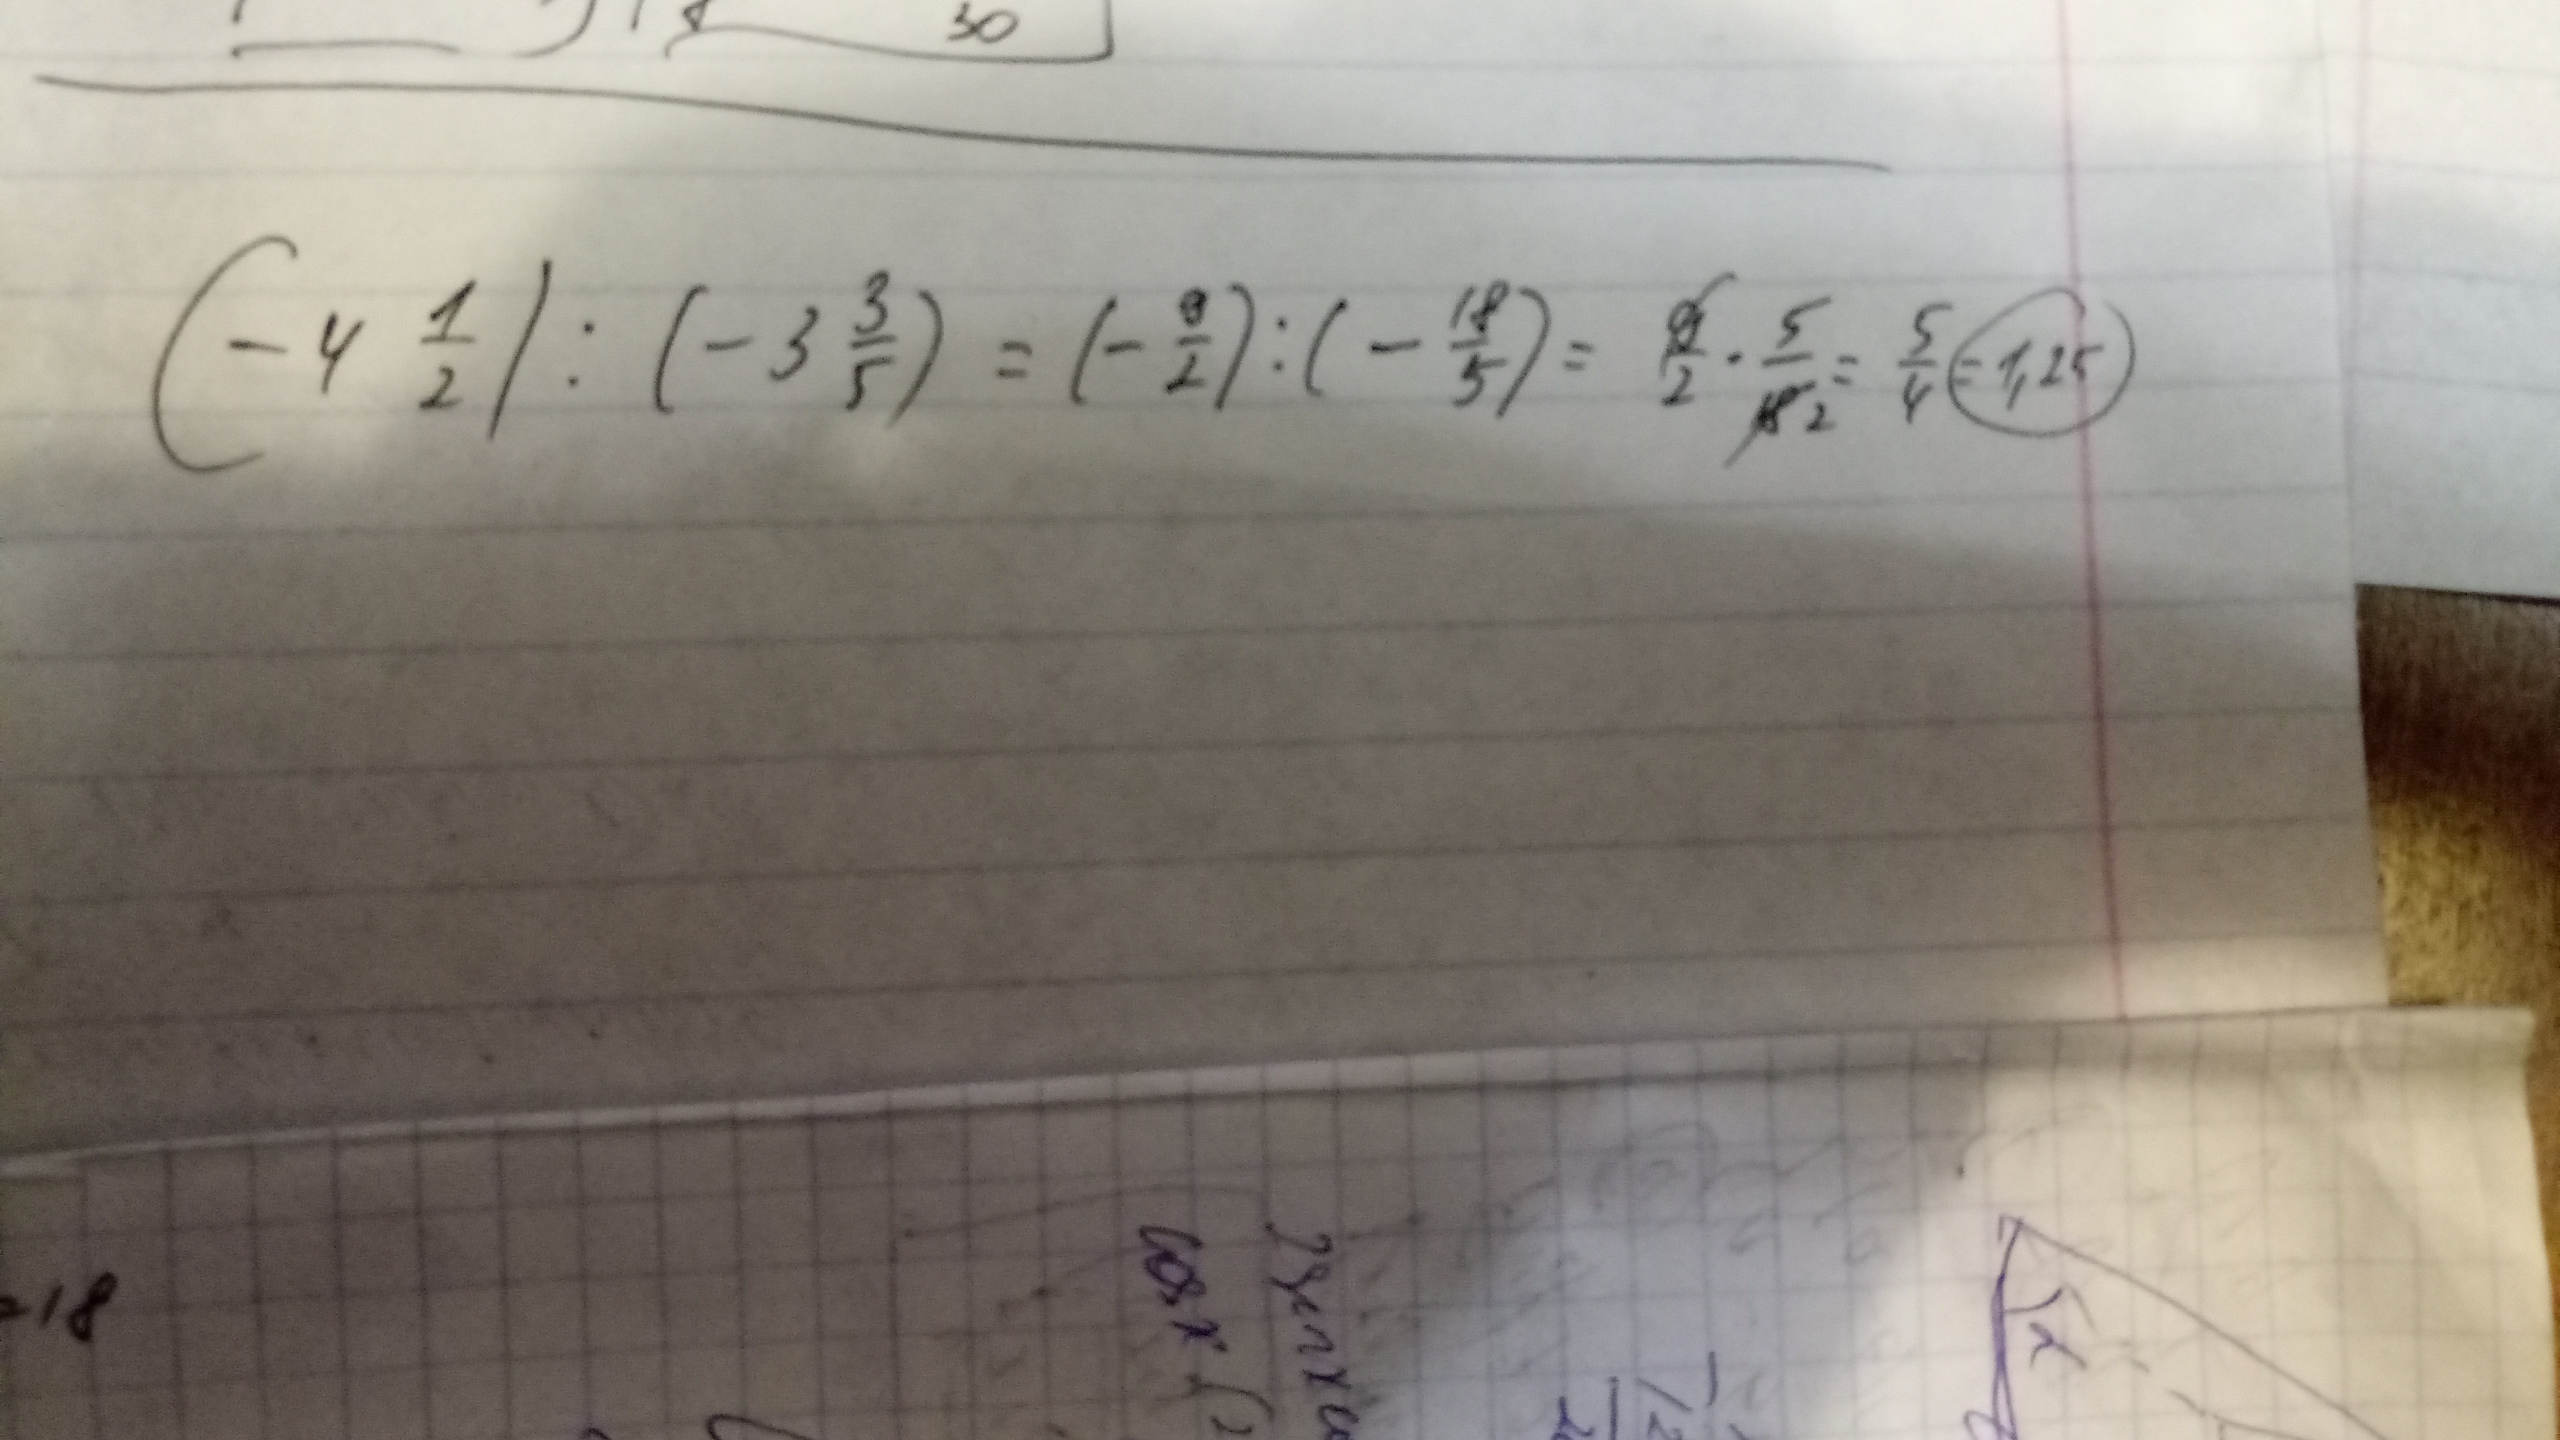 30
(-4 1/2) : (-3 3/5) = (-9/2) : (-18/5) = 9/2 · 5/18 2 = 5/4 = 1,25
=18
cos x